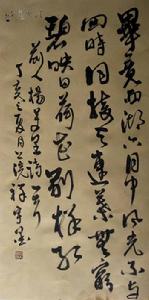 畢竟西湖六月中風光不与
四時同接天蓮葉無窮
碧映日荷花别樣紅
楊万里詩一首
丁亥之夏月